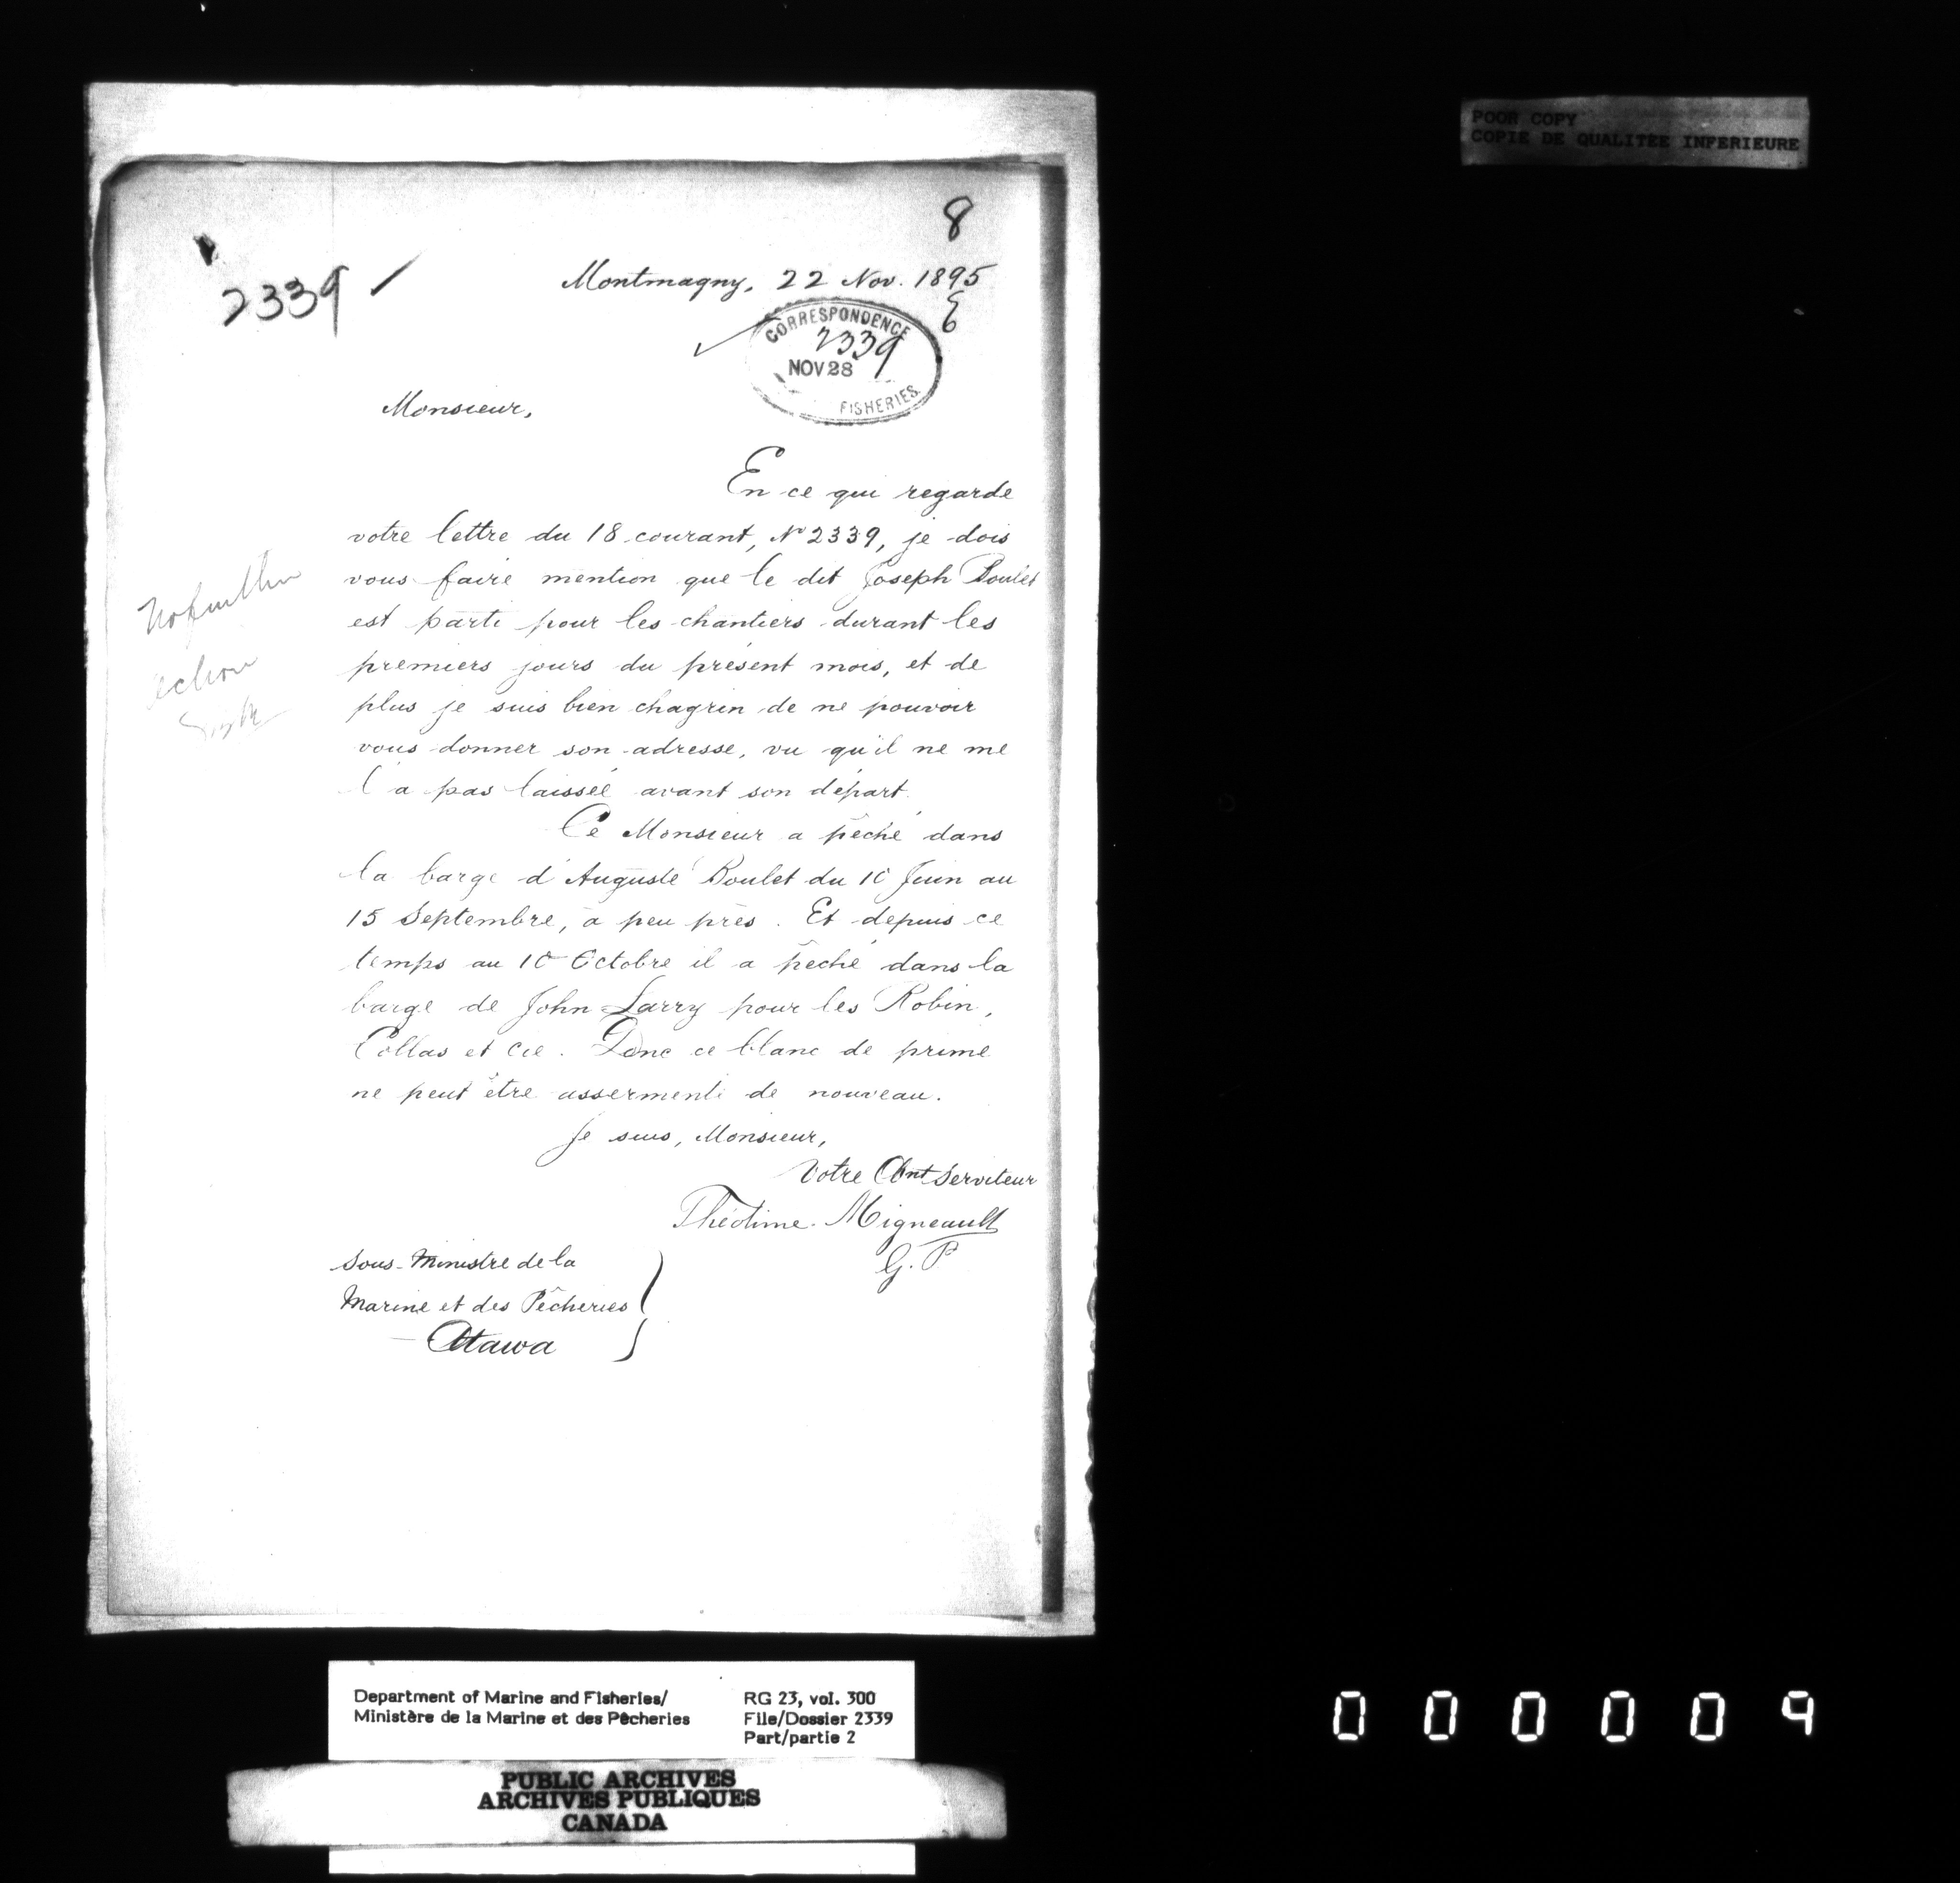 POOR COPY
COPIE DE QUALITEE INFERIEURE
8
2339
Montmagny, 22 Nov. 1895
CORRESPONDENCE
2339
NOV 28
FISHERIES
Monsieur,
En ce qui regarde
votre lettre du 18 courant, No 2339, je dois
vous faire mention que le dit Joseph Boulet
est parti pour les chantiers durant les
premiers jours du présent mois, et de
plus je suis bien chagrin de ne pouvoir
vous donner son adresse, vu qu'il ne me
l'a pas laissée avant son départ.
No further
action
Ce Monsieur a pêché dans
la barge d'Auguste Boulet du 10 Juin au
15 Septembre, à peu près. Et depuis ce
temps au 10 Octobre il a pêché dans la
barge de John Larry pour les Robin,
Collas et Cie. Donc ce blanc de prime
ne peut être assermenté de nouveau.
Je suis, Monsieur,
Votre Obnt Serviteur
Théotime Migneault
G. P.
Sous-Ministre de la
Marine et des Pêcheries
Ottawa
Department of Marine and Fisheries/
Ministère de la Marine et des Pêcheries
RG 23, vol. 300
File/Dossier 2339
Part/partie 2
PUBLIC ARCHIVES
ARCHIVES PUBLIQUES
CANADA
000009